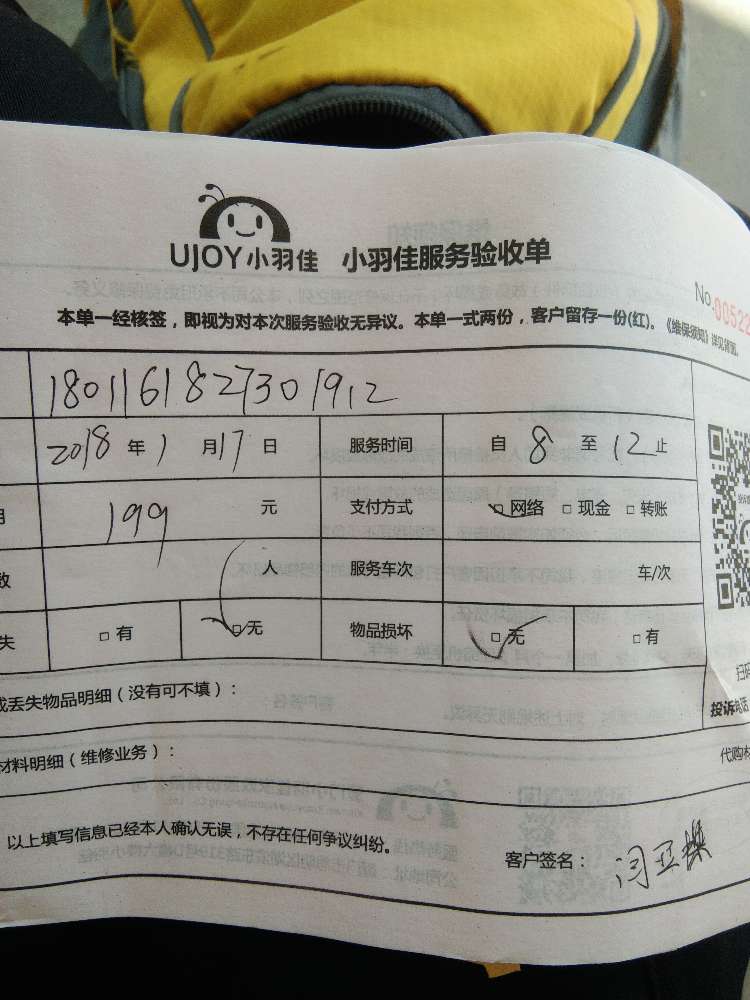 UJOY小羽佳 小羽佳服务验收单
No.00522
本单一经核签，即视为对本次服务验收无异议。本单一式两份，客户留存一份(红)。《维保须知》详见背面。
1801161827301912
2018年1月17日 服务时间 自8至12止
199元 支付方式 □网络 □现金 □转账
数 人 服务车次 车/次
失 □有 □无 物品损坏 □无 □有
扫码
或丢失物品明细（没有可不填）：
投诉电话
材料明细（维修业务）：
代购材
以上填写信息已经本人确认无误，不存在任何争议纠纷。
客户签名：闫亚操